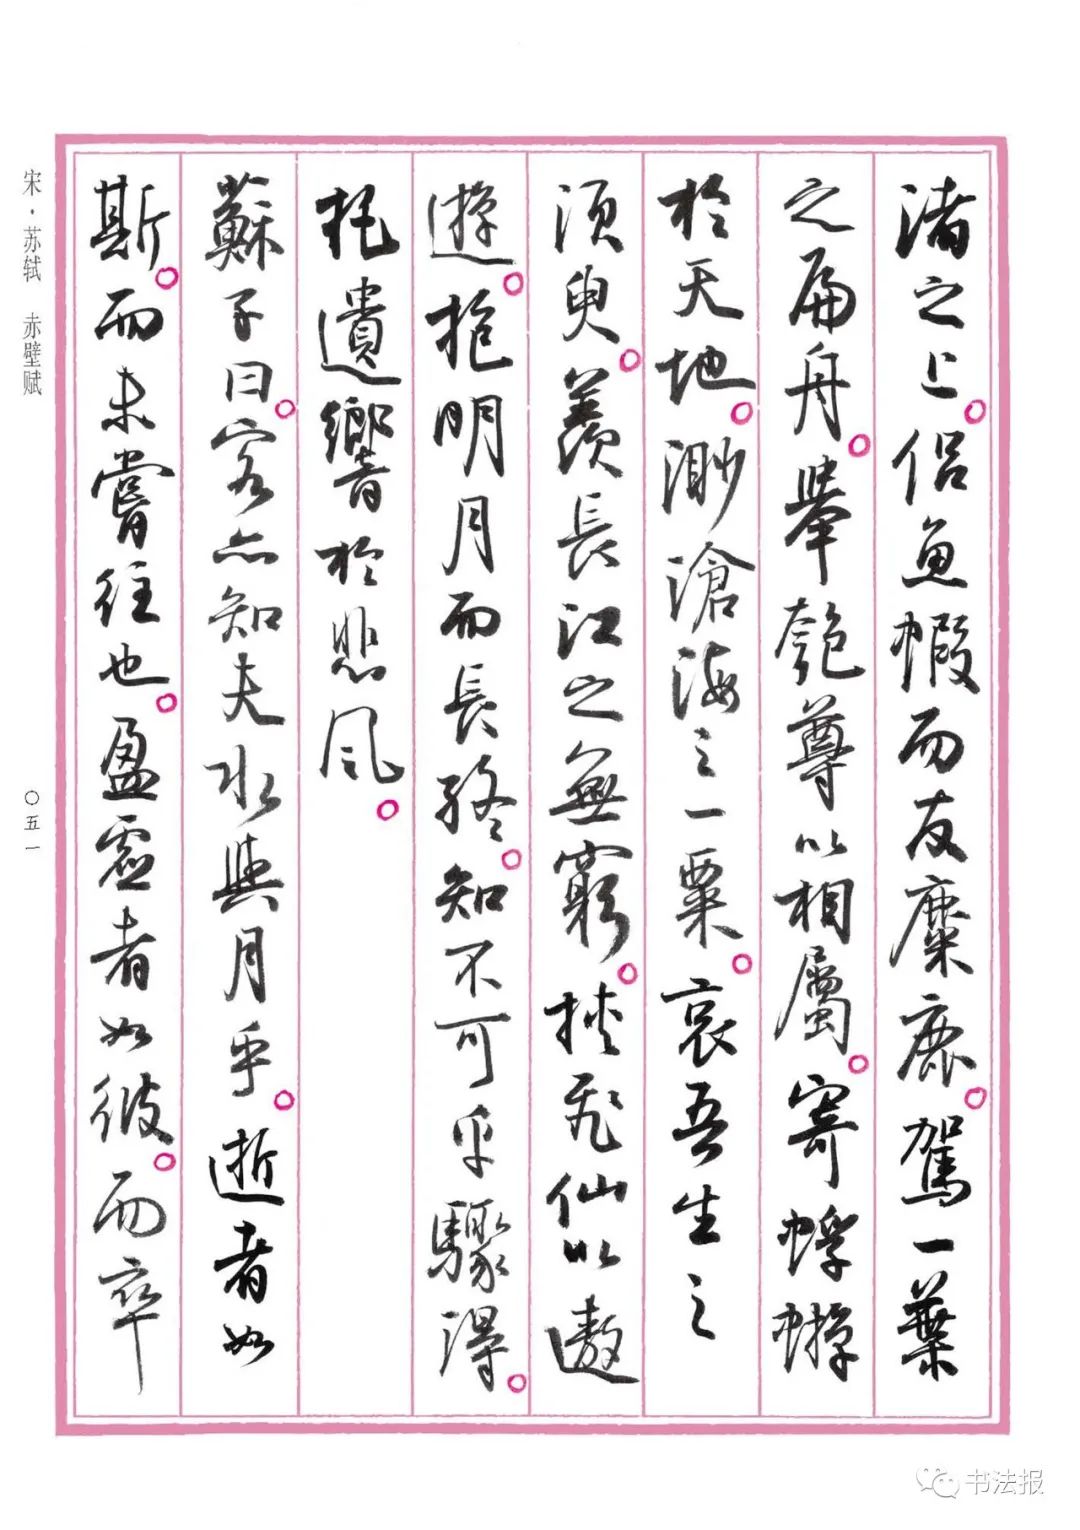 渚之上。侣魚蝦而友麋鹿。駕一葉
之扁舟。舉匏尊以相屬。寄蜉蝣
於天地。渺滄海之一粟。哀吾生之
須臾。羨長江之無窮。挾飛仙以遨
遊。抱明月而長終。知不可乎驟得。
托遺響於悲風。
蘇子曰。客亦知夫水與月乎。逝者如
斯。而未嘗往也。盈虛者如彼。而卒
宋·苏轼 赤壁赋
〇五一
书法报